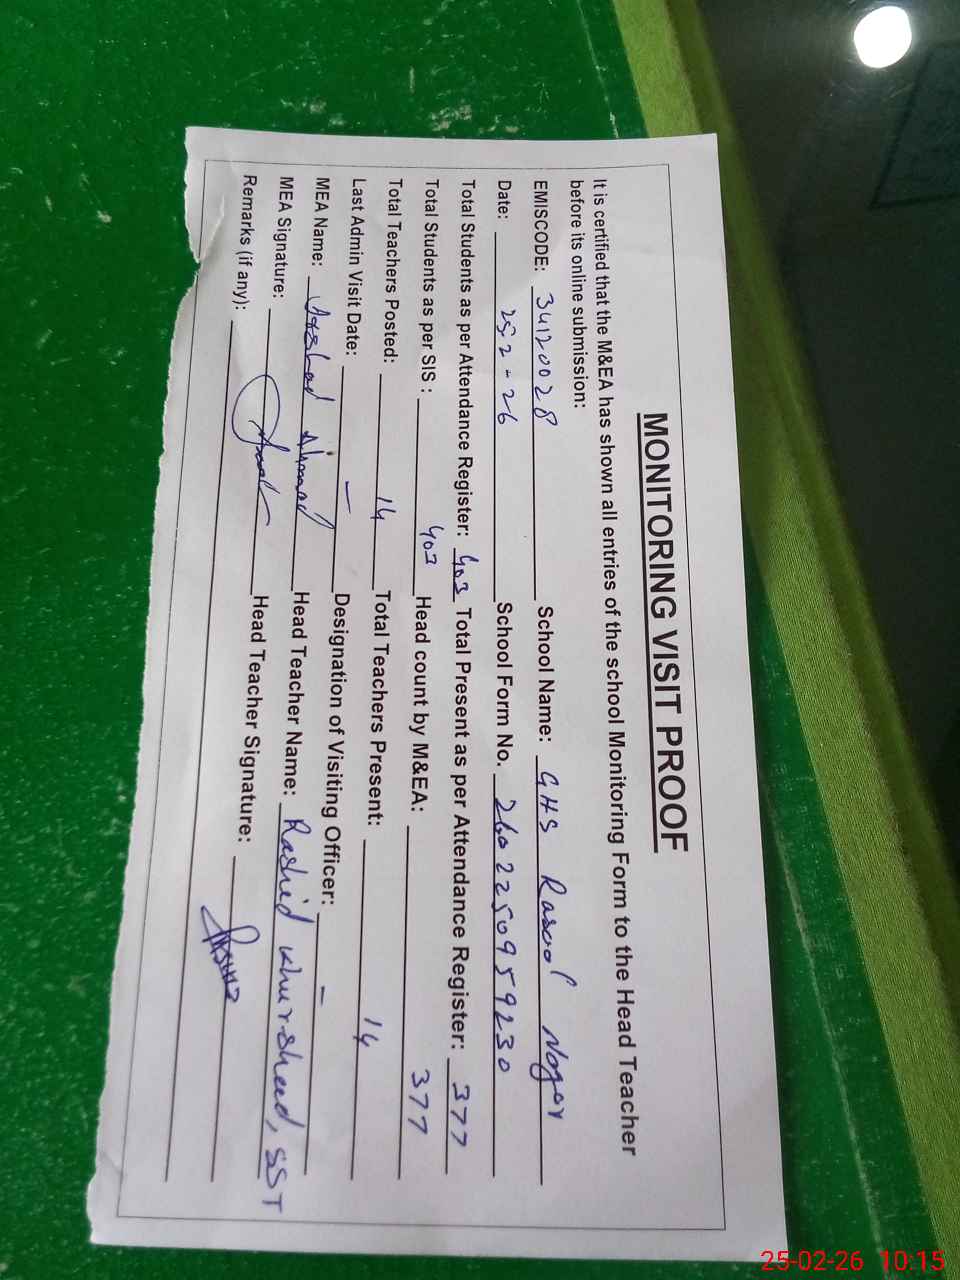 MONITORING VISIT PROOF
It is certified that the M&EA has shown all entries of the school Monitoring Form to the Head Teacher
before its online submission:
EMISCODE: 34120028 School Name: GHS Rasool Nagar
Date: 25-2-26 School Form No. 260225095959230
Total Students as per Attendance Register: 403 Total Present as per Attendance Register: 377
Total Students as per SIS : 403 Head count by M&EA: 377
Total Teachers Posted: 14 Total Teachers Present: 14
Last Admin Visit Date: — Designation of Visiting Officer: –
MEA Name: Ahmad Head Teacher Name: Rashid Khursheed, SST
MEA Signature: Head Teacher Signature:
Remarks (if any):
25-02-26 10:15